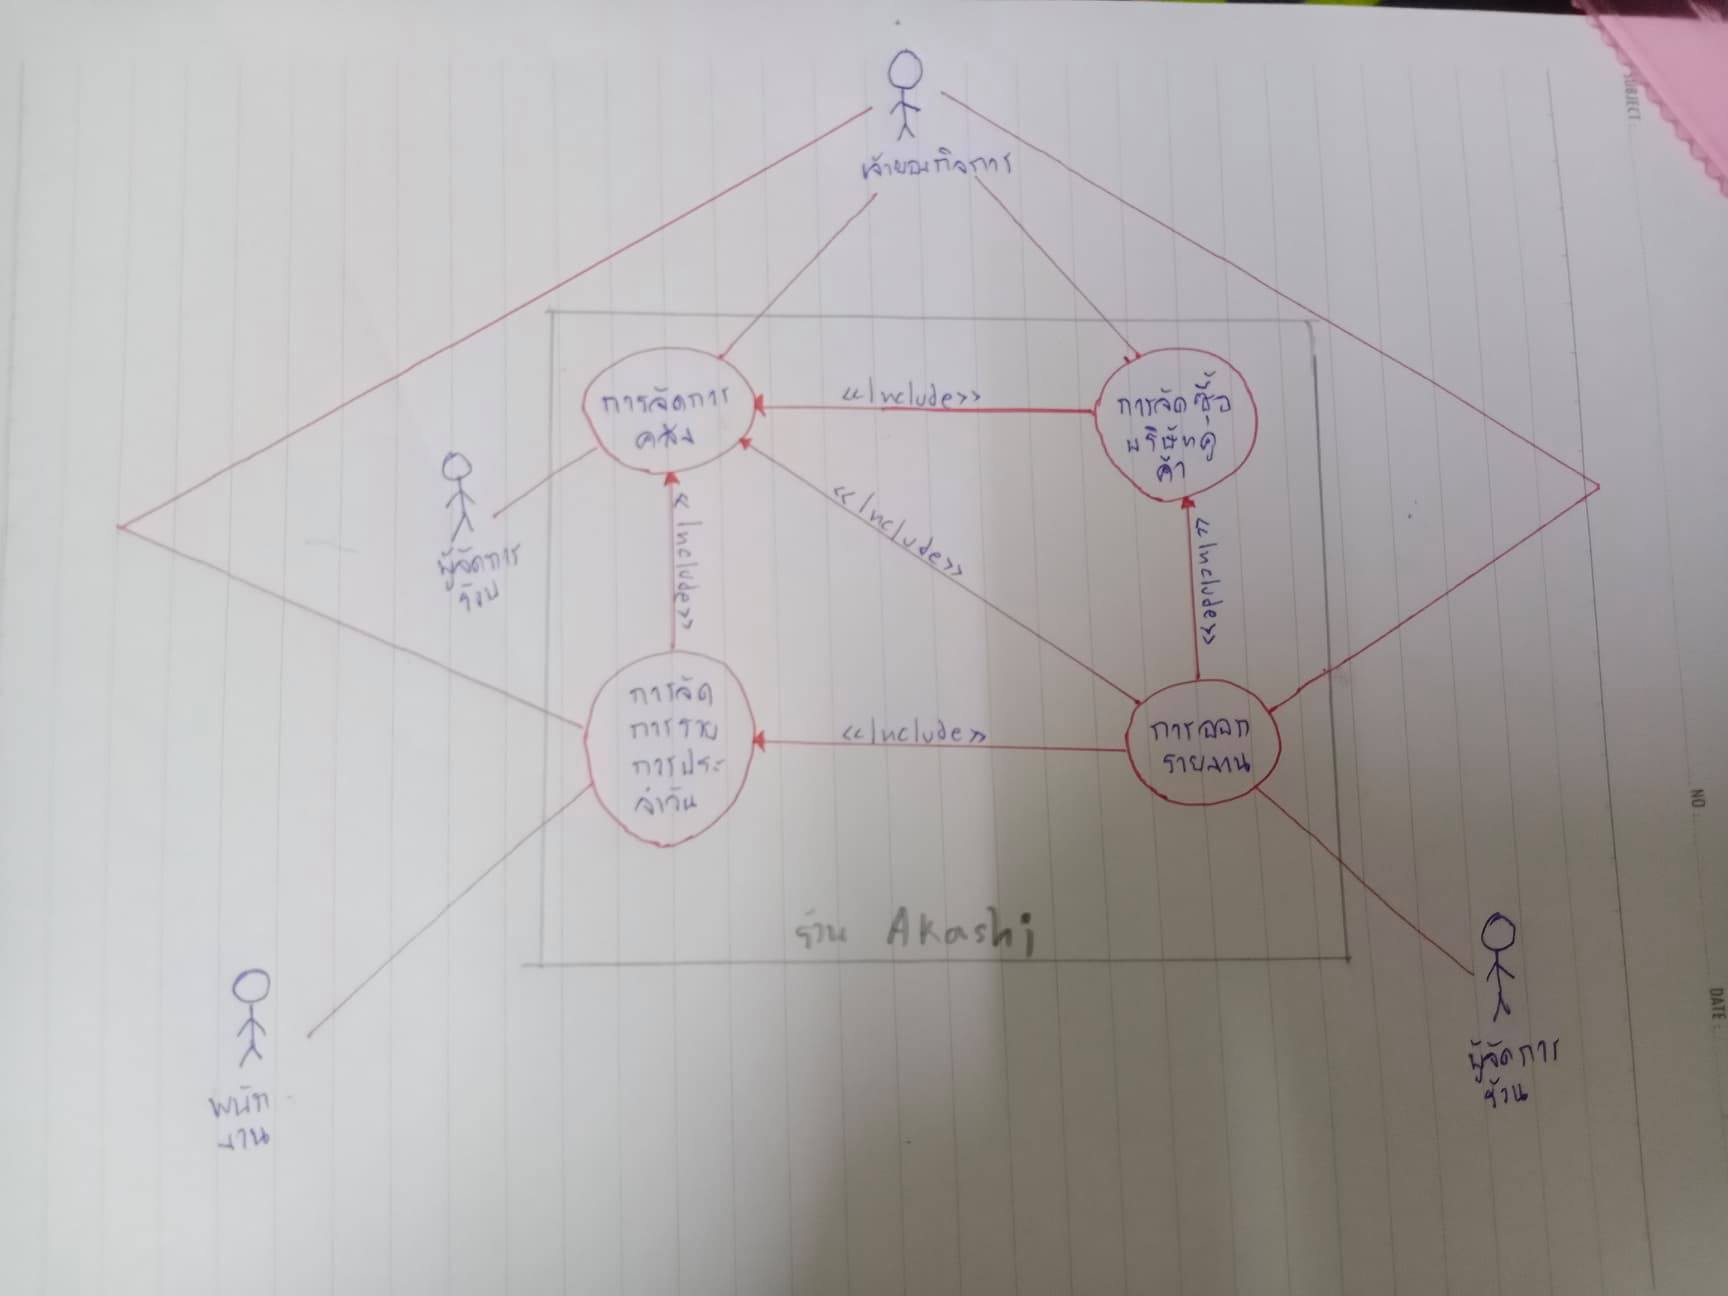 SUBJECT :
เจ้าของกิจการ
การจัดการ
คลัง
<<Include>>
การจัดซื้อ
บริษัทคู่
ค้า
ผู้จัดการ
ร้าน
<<Include>>
<<Include>>
<<Include>>
การจัด
การราย
การประ
จำวัน
<<Include>>
การออก
รายงาน
NO
ร้าน Akashi
DATE :
พนัก
งาน
ผู้จัดการ
ร้าน